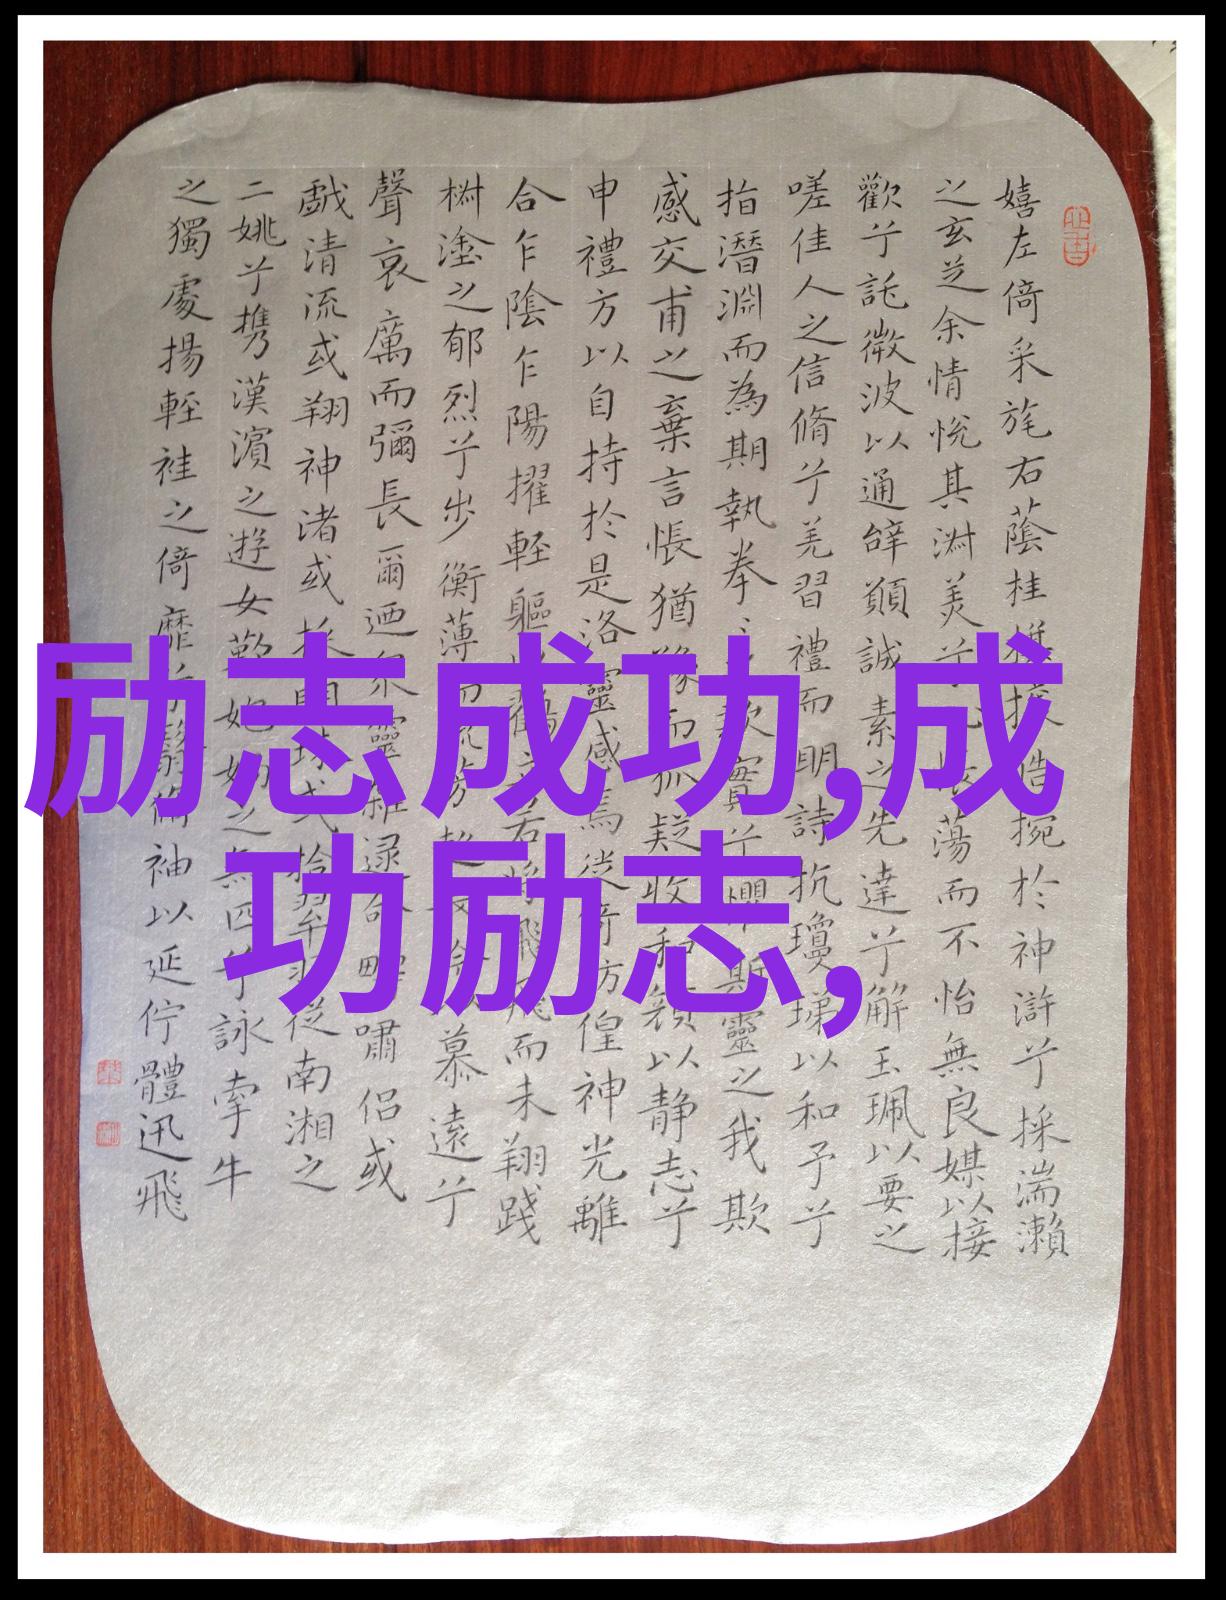 嬉左倚采旄右蔭桂攘皓捥於神滸兮採湍瀨
之玄芝余情悅其淑美兮蕩而不怡無良媒以接
歡兮託微波以通辝願誠素之先達兮解玉珮以要之
嗟佳人之信脩兮羌習禮而明詩抗瓊珶以和予兮
指潛淵而為期執拳之款實兮懼斯靈之我欺
感交甫之棄言悵猶豫而狐疑收和顏以静志兮
申禮方以自持於是洛靈感焉徙倚方偟神光離
合乍陰乍陽擢輕軀鶴立若將飛而未翔踐
椒塗之郁烈兮步衡薄而流芳超慕遠兮
聲哀厲而彌長爾迺眾靈雜遝命疇嘯侶或
戲清流或翔神渚或採明珠或拾翠羽從南湘之
二姚兮攜漢濱之游女歎之無匹兮詠牽牛
之獨處揚輕袿之倚靡兮翳脩袖以延佇體迅飛
励志成功,成
功励志,